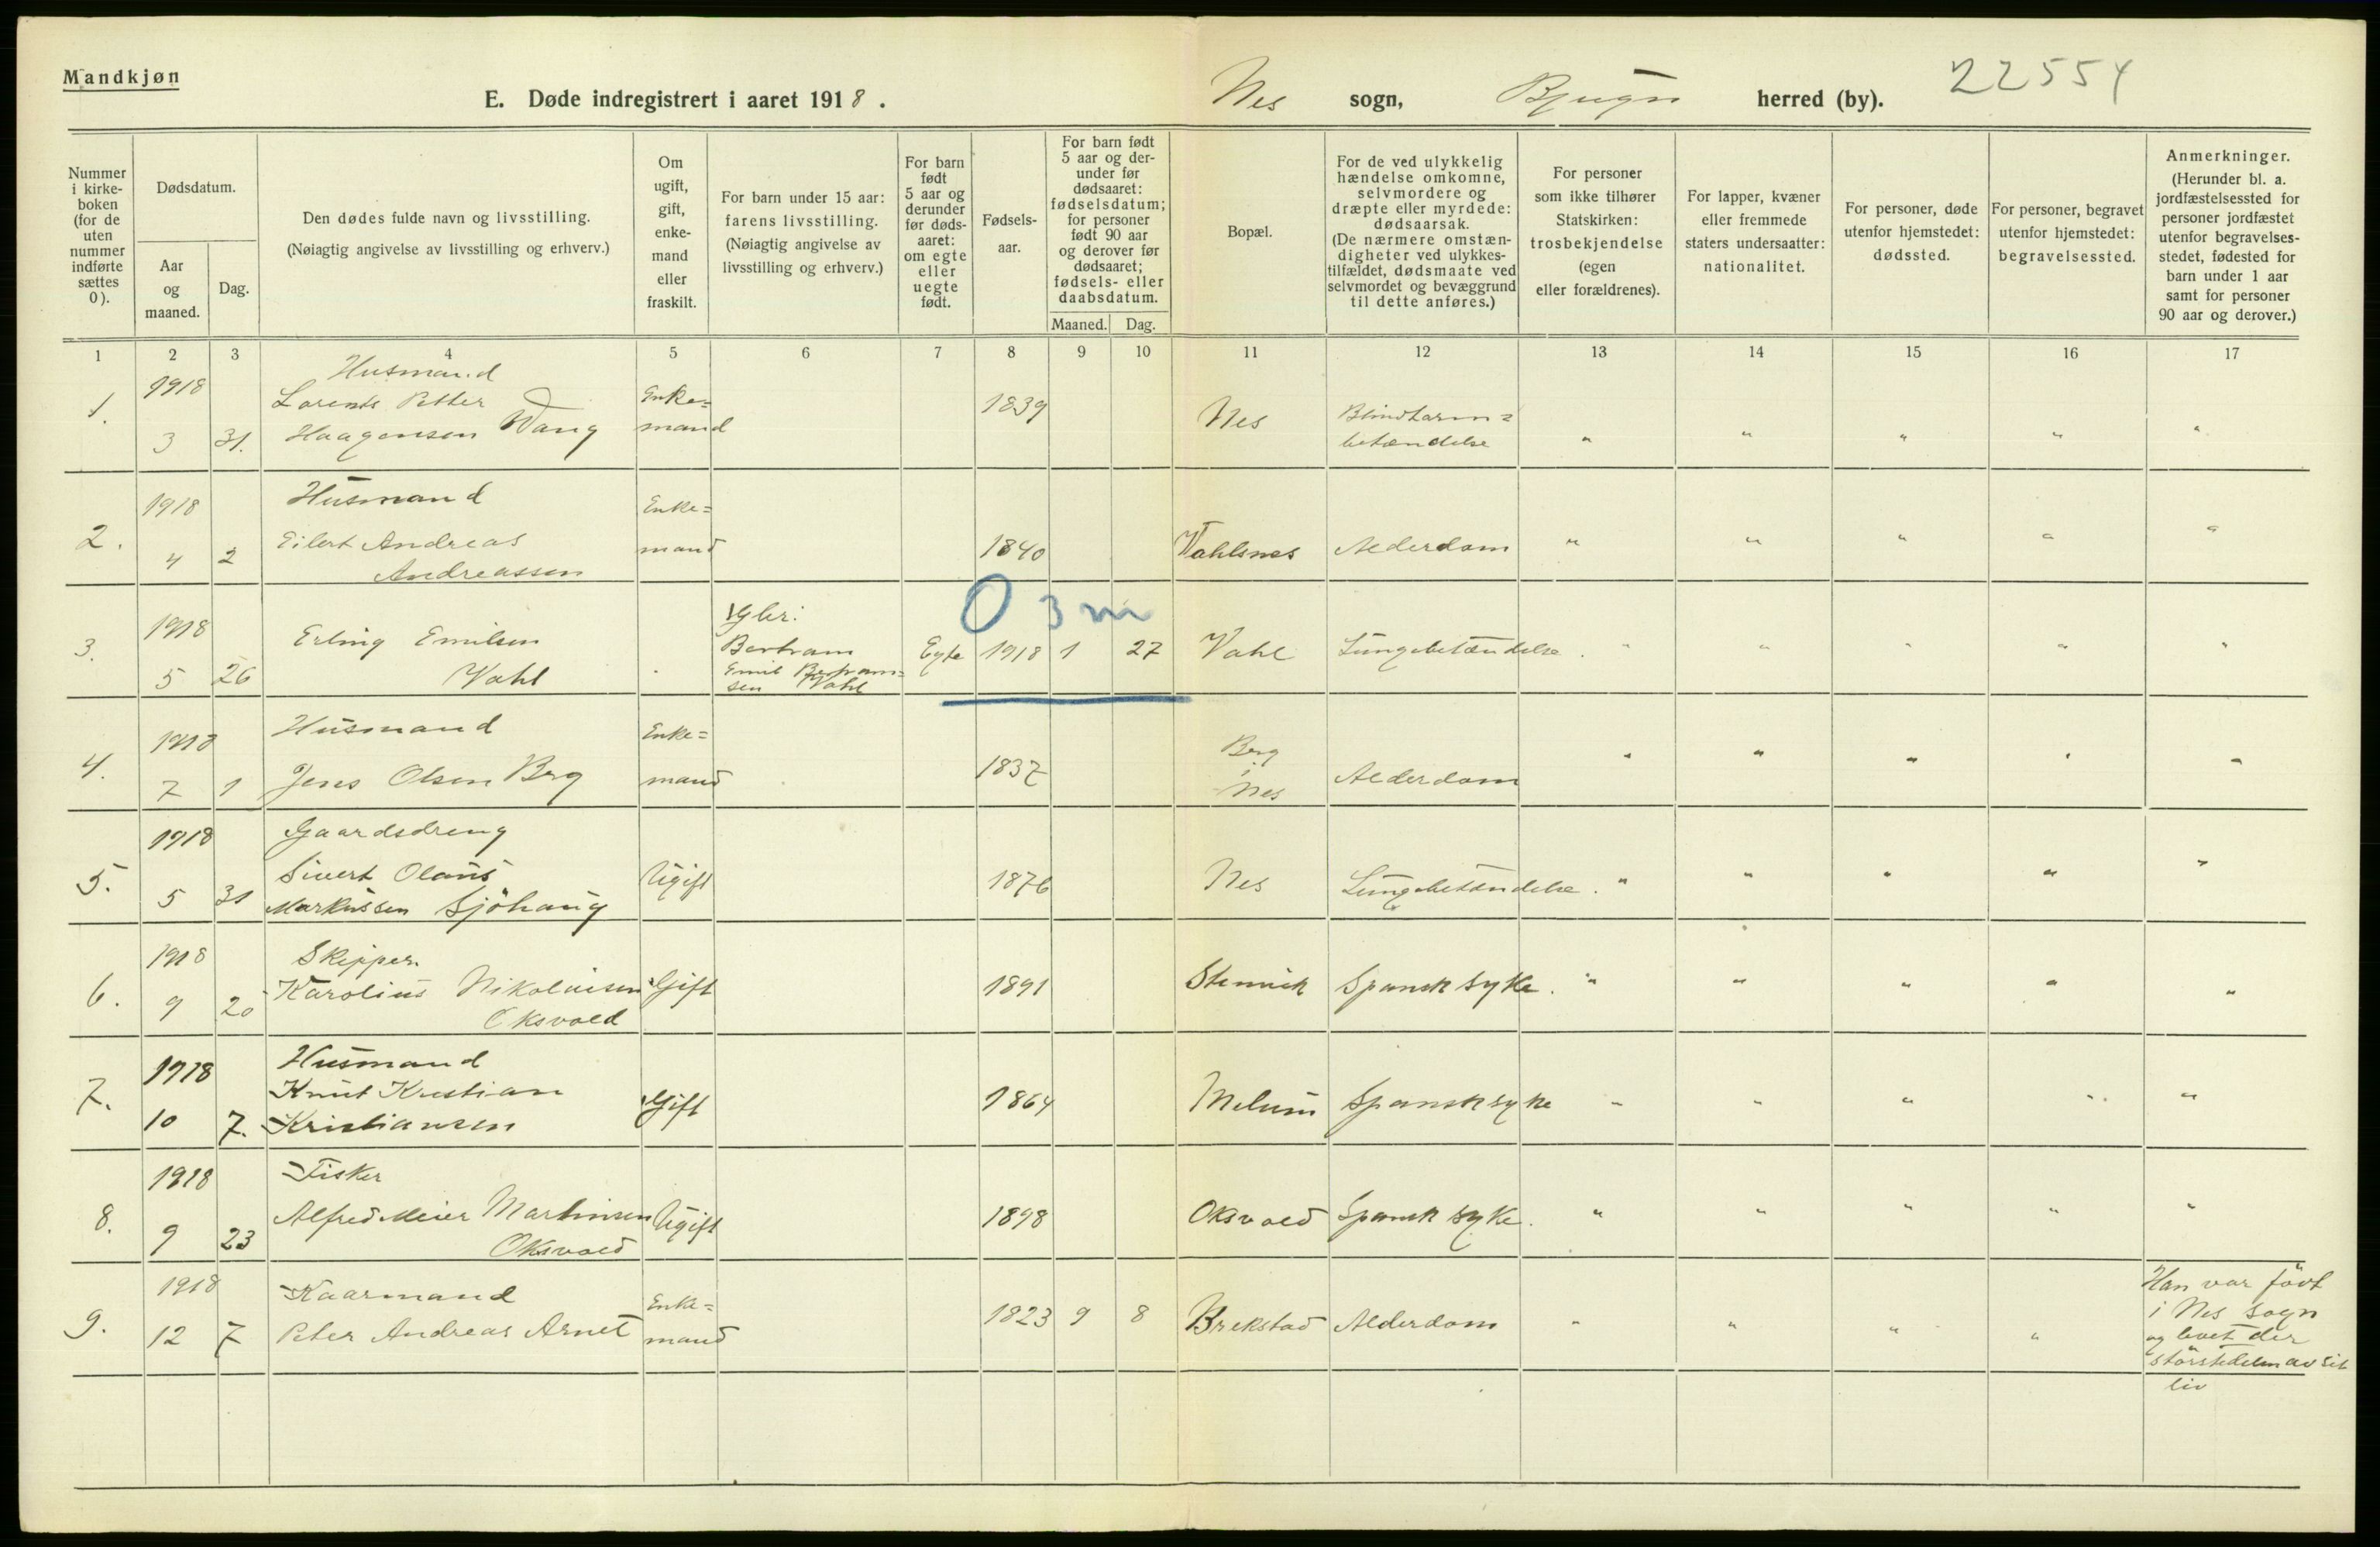 Mandkjøn
E. Døde indregistrert i aaret 1918.
Nes sogn, Bjugn herred (by).
22554
Nummer i kirke-boken (for de uten nummer indførte sættes 0).
Dødsdatum.
Aar og maaned.
Dag.
Den dødes fulde navn og livsstilling.
(Nøiagtig angivelse av livsstilling og erhverv.)
Om ugift, gift, enke-mand eller fraskilt.
For barn under 15 aar: farens livsstilling.
(Nøiagtig angivelse av livsstilling og erhverv.)
For barn født 5 aar og derunder før døds-aaret: om egte eller uegte født.
Fødsels-aar.
For barn født 5 aar og der-under før dødsaaret: fødselsdatum; for personer født 90 aar og derover før dødsaaret; fødsels- eller daabsdatum.
Maaned. Dag.
Bopæl.
For de ved ulykkelig hændelse omkomne, selvmordere og dræpte eller myrdede: dødsaarsak.
(De nærmere omstæn-digheter ved ulykkes-tilfældet, dødsmaate ved selvmordet og bevæggrund til dette anføres.)
For personer som ikke tilhører Statskirken: trosbekjendelse (egen eller forældrenes).
For lapper, kvæner eller fremmede staters undersaatter: nationalitet.
For personer, døde utenfor hjemstedet: dødssted.
For personer, begravet utenfor hjemstedet: begravelsessted.
Anmerkninger.
(Herunder bl. a. jordfæstelsessted for personer jordfæstet utenfor begravelses-stedet, fødested for barn under 1 aar samt for personer 90 aar og derover.)
1 2 3 4 5 6 7 8 9 10 11 12 13 14 15 16 17
1. 1918 3 31. Husmand
Lorents Petter
Haagensen Wang
Enke=
mand
1839 Nes
Blindtarm=
betændelse " " " " "
2. 1918 4 2 Husmand
Eilert Andreas
Andreassen
Enke=
mand
1840 Vahlsnes Alderdom " " " " "
0 3 m
3. 1918 5 26 Erling Emilsen
Vahl
Bertram
Emil Bertram=
sen Vahl
Egte 1918 1 27 Vahl Lungebetændelse. " " " " "
4. 1918 7 1 Husmand
Jens Olsen Berg
Enke=
mand
1837
Berg
i
Nes
Alderdom " " " " "
5. 1918 5 31 Gaardsdreng
Sivert Olaus
Markussen Sjöhaug
Ugift 1876 Nes Lungebetændelse. " " " " "
6. 1918 9 20 Skipper
Karolius Nikolaisen
Oksvold
Gift 1891 Stenvik Spansk syke. " " " " "
7. 1918 10 7. Husmand
Knut Kristian
Kristiansen
Gift 1864 Melum Spansk syke " " " " "
8. 1918 9 23 Fisker
Alfred Meier Martinsen
Oksvold
Ugift 1898 Oksvold Spansk syke. " " " " "
9. 1918 12 7 Kaarmand
Peter Andreas Arnet
Enke=
mand
1823 9 8 Brekstad Alderdom " " " "
Han var född
i Nes sogn
og levet der
störstedelen av sit
liv